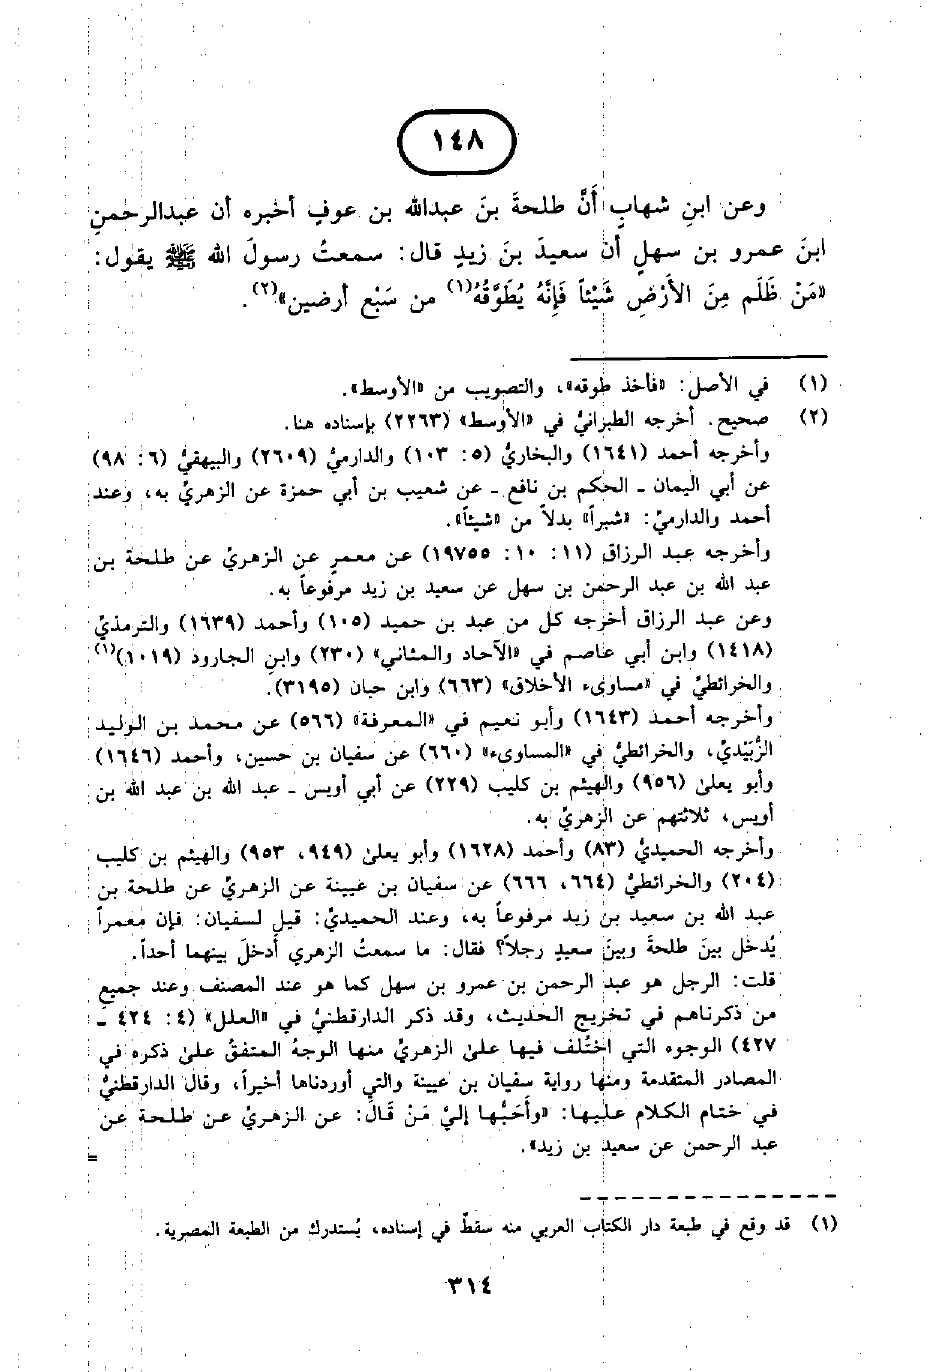 ١٤٨
وعن ابنِ شهابٍ أَنَّ طلحةَ بنَ عبدالله بن عوفٍ أخبره أن عبدالرحمنِ
ابنَ عمرو بن سهلٍ أن سعيدَ بنَ زيدٍ قال: سمعتُ رسولَ الله ﷺ يقول:
«مَنْ ظَلَم مِنَ الأَرْضِ شَيْئاً فَإِنَّهُ يُطَوَّقُهُ(١) من سَبْع أرضين»(٢).
(١) في الأصل: «فأخذ طوقه»، والتصويب من «الأوسط».
(٢) صحيح. أخرجه الطبرانيُّ في «الأوسط» (٢٢٦٣) بإسناده هنا.
وأخرجه أحمد (١٦٤١) والبخاريُّ (٥: ١٠٣) والدارميُّ (٢٦٠٩) والبيهقيُّ (٦: ٩٨)
عن أبي اليمان - الحكم بن نافع - عن شعيب بن أبي حمزة عن الزهريِّ به، وعند
أحمد والدارميِّ: «شبراً» بدلاً من «شيئاً».
وأخرجه عبد الرزاق (١١: ١٠: ١٩٧٥٥) عن معمرٍ عن الزهريِّ عن طلحة بن
عبد الله بن عبد الرحمن بن سهل عن سعيد بن زيد مرفوعاً به.
وعن عبد الرزاق أخرجه كل من عبد بن حميد (١٠٥) وأحمد (١٦٣٩) والترمذيُّ
(١٤١٨) وابن أبي عاصم في «الآحاد والمثاني» (٢٣٠) وابنِ الجارود (١٠١٩)(١)
والخرائطيُّ في «مساوىء الأخلاق» (٦٦٣) وابن حبان (٣١٩٥).
وأخرجه أحمد (١٦٤٣) وأبو نعيم في «المعرفة» (٥٦٦) عن محمد بن الوليد
الزُّبَيْديِّ، والخرائطيُّ في «المساوىء» (٦٦٠) عن سفيان بن حسين، وأحمد (١٦٤٦)
وأبو يعلىٰ (٩٥٦) والهيثم بن كليب (٢٢٩) عن أبي أويس - عبد الله بن عبد الله بن
أويس، ثلاثتهم عن الزهريِّ به.
وأخرجه الحميديُّ (٨٣) وأحمد (١٦٢٨) وأبو يعلىٰ (٩٤٩، ٩٥٣) والهيثم بن كليب
(٢٠٤) والخرائطيُّ (٦٦٤، ٦٦٦) عن سفيان بن عيينة عن الزهريِّ عن طلحة بن
عبد الله بن سعيد بن زيد مرفوعاً به، وعند الحميديِّ: قيل لسفيان: فإن معمراً
يُدخل بينَ طلحةَ وبينَ سعيدٍ رجلاً؟ فقال: ما سمعتُ الزهري أدخلَ بينهما أحداً.
قلت: الرجل هو عبد الرحمن بن عمرو بن سهل كما هو عند المصنف وعند جميعِ
من ذكرناهم في تخريج الحديث، وقد ذكر الدارقطنيُّ في «العلل» (٤: ٤٢٤ -
٤٢٧) الوجوه التي اختُلف فيها علىٰ الزهريِّ منها الوجهُ المتفقُ علىٰ ذكره في
المصادر المتقدمة ومنها رواية سفيان بن عيينة والتي أوردناها أخيراً، وقال الدارقطنيُّ
في ختام الكلام عليها: «وأَحَبُّها إليَّ مَنْ قَالَ: عن الزهريِّ عن طلحة عن
عبد الرحمن عن سعيد بن زيد».
=
(١) قد وقع في طبعة دار الكتاب العربي منه سقطٌ في إسناده، يُستدرك من الطبعة المصرية.
٣١٤